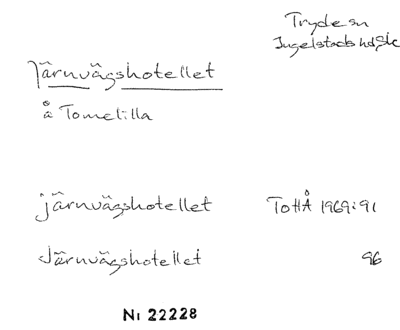 Tryde sn
Ingelstads hd, Sk
Järnvägshotellet
å Tomelilla
järnvägshotellet ToHÅ 1969:91
Järnvägshotellet 96
NI 22228